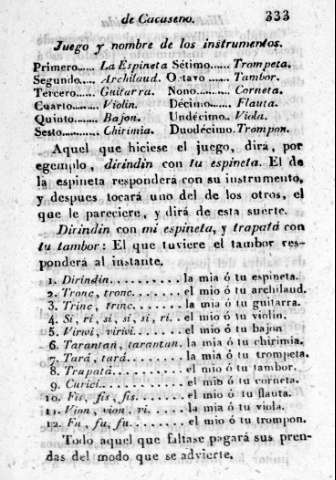 de Cacaseno. 333
Juego y nombre de los instrumentos.
Primero...... La Espineta Sétimo...... Trompeta.
Segundo.... Archilaud. Octavo ..... Tambor.
Tercero..... Guitarra. Nono......... Corneta.
Cuarto....... Violin. Décimo....... Flauta.
Quinto....... Bajon. Undécimo. Viola.
Sesto......... Chirimia. Duodécimo. Trompon.
Aquel que hiciese el juego, dirá, por
egemplo, dirindin con tu espineta. El de
la espineta responderá con su instrumento,
y despues tocará uno del de los otros, el
que le pareciere, y dirá de esta suerte.
Dirindin con mi espineta, y trapatá con
tu tambor: El que tuviere el tambor res-
ponderá al instante.
1. Dirindin.......... la mia ó tu espineta.
2. Tronc, tronc....... el mio ó tu archilaud.
3. Trinc, trinc....... la mia ó tu guitarra.
4. Si, ri, si, si, si, ri.. el mio ó tu violin.
5. Virivi, virivi...... el mio ó tu bajon
6. Tarantan, tarantan. la mia ó tu chirimia.
7. Tará, tará......... la mia ó tu trompeta.
8. Trapatá.......... el mio ó tu tambor.
9. Curici........... el mio ó tu corneta.
10. Fis, fis, fis....... el mio ó tu flauta.
11. Vion, vion, ri..... la mia ó tu viola.
12. Fu, fu, fu......... el mio ó tu trompon.
Todo aquel que faltase pagará sus pren-
das del modo que se advierte.